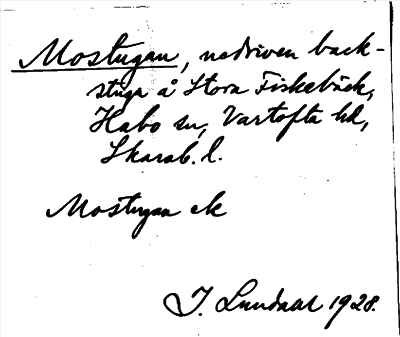 Mostugan, nedriven back-
stuga å Stora Fiskebäck,
Habo sn, Vartofta hd,
Skarab. l.
Mostugan ck
J. Lundahl 1928.